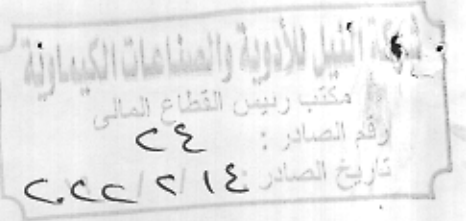 شركة النيل للأدوية والصناعات الكيماوية
مكتب رئيس القطاع المالى
رقم الصادر : ٢٤
تاريخ الصادر ١٤ / ٢ / ٢٠٢٢